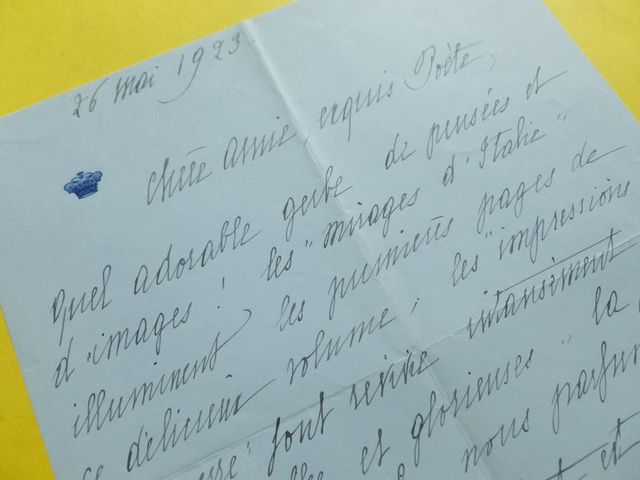 26 mai 1923
Chère Amie, exquis Poète,
Quel adorable gerbe de pensées et
d'images! les "mirages d'Italie"
illuminent les premières pages de
ce délicieux volume; les "impressions
font revivre intensément
et glorieuses" la
nous parfum
et